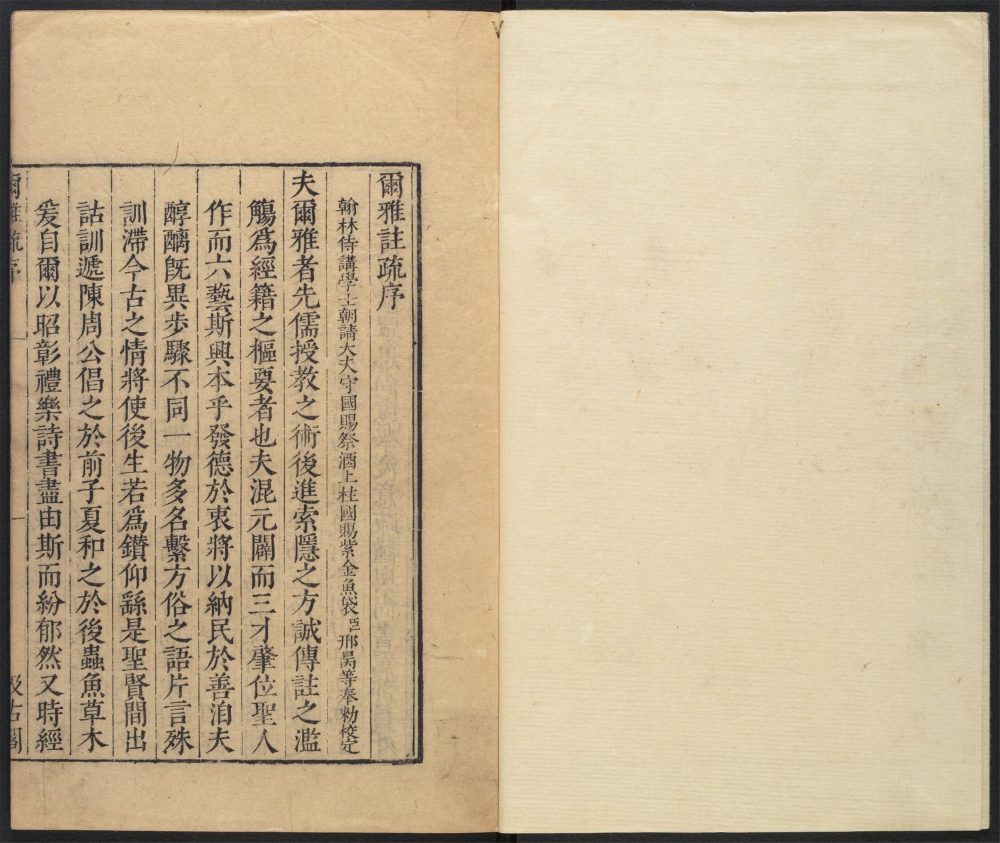 爾雅註疏序
翰林侍講學士朝請大夫守國子祭酒上柱國賜紫金魚袋臣邢昺等奉勅校定
夫爾雅者先儒授教之術後進索隱之方誠傳註之濫
觴爲經籍之樞要者也夫混元闢而三才肇位聖人
作而六藝斯興本乎發德於衷將以納民於善洎夫
醇醨旣異步驟不同一物多名繫方俗之語片言殊
訓滯今古之情將使後生若爲鑽仰繇是聖賢間出
詁訓遞陳周公倡之於前子夏和之於後蟲魚草木
爰自爾以昭彰禮樂詩書盡由斯而紛郁然又時經
爾雅疏序
汲古閣